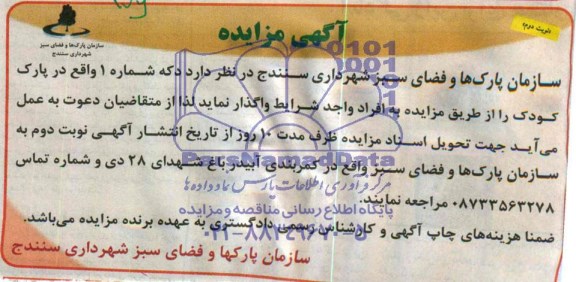 نوبت دوم
آگهی مزایده
سازمان پارک‌ها و فضای سبز
شهرداری سنندج
سازمان پارک‌ها و فضای سبز شهرداری سنندج در نظر دارد دکه شماره ۱ واقع در پارک
کودک را از طریق مزایده به افراد واجد شرایط واگذار نماید لذا از متقاضیان دعوت به عمل
می‌آید جهت تحویل اسناد مزایده ظرف مدت ۱۰ روز از تاریخ انتشار آگهی نوبت دوم به
سازمان پارک‌ها و فضای سبز واقع در کمربندی آبیدر باغ شهدای ۲۸ دی و شماره تماس
۰۸۷۳۳۵۶۳۲۷۸ مراجعه نمایند.
ضمنا هزینه‌های چاپ آگهی و کارشناس رسمی دادگستری به عهده برنده مزایده می‌باشد.
سازمان پارکها و فضای سبز شهرداری سنندج
ParsNamadData
مرکز فرآوری اطلاعات پارس نماد داده ها
پایگاه اطلاع رسانی مناقصه و مزایده